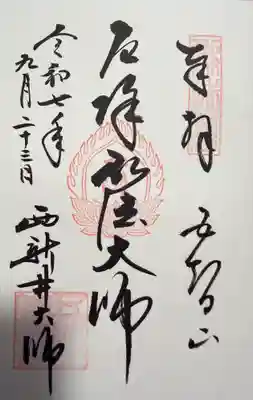 奉拝
五智山
厄除弘法大師
令和七年
九月二十三日
西新井大師